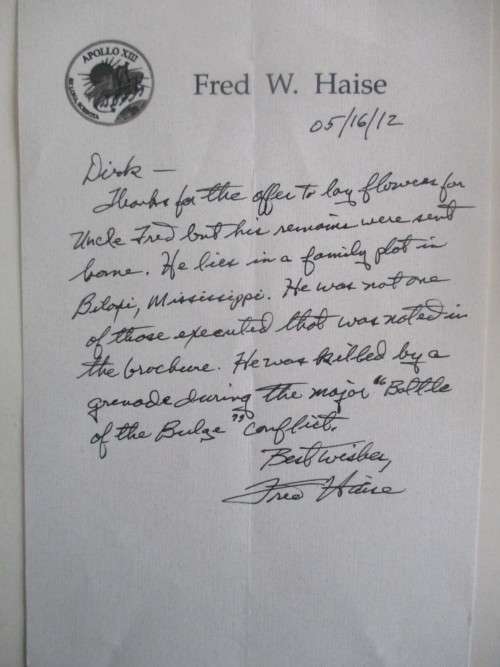 APOLLO XIII
EX LUNA, SCIENTIA
Fred W. Haise
05/16/12
Dirk —
Thanks for the offer to lay flowers for
Uncle Fred but his remains were sent
home. He lies in a family plot in
Biloxi, Mississippi. He was not one
of those executed that was noted in
the brochure. He was killed by a
grenade during the major "Battle
of the Bulge" conflict.
Best wishes,
Fred Haise